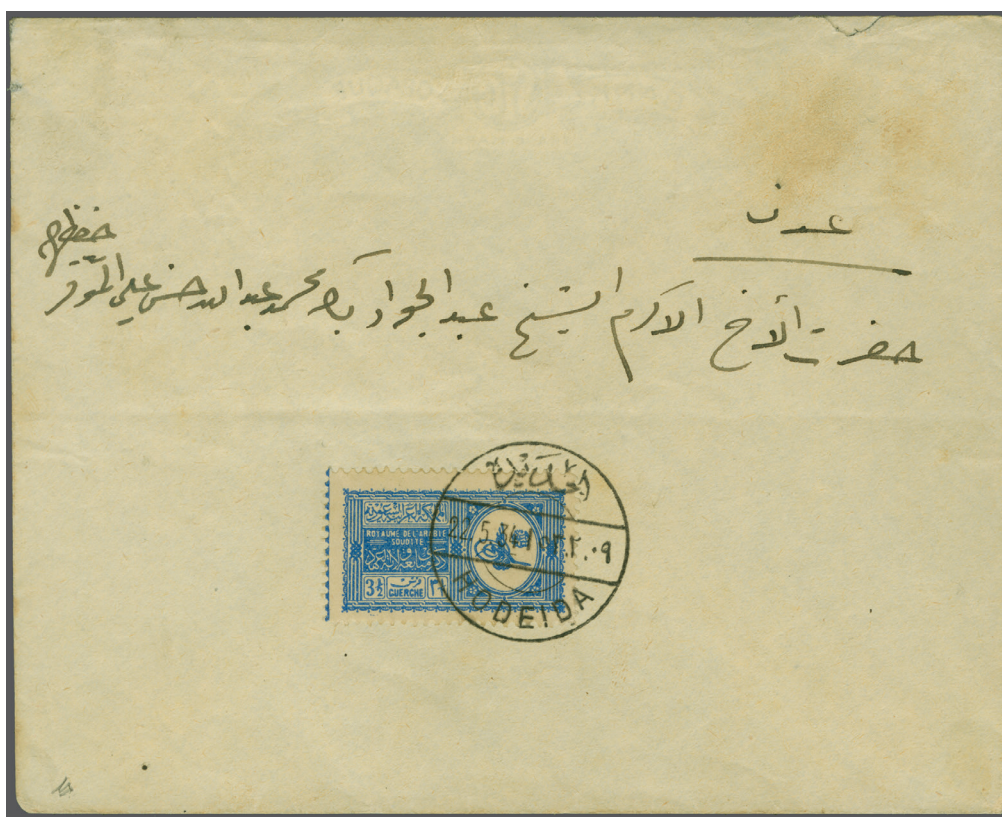 عدن
حضرت الأخ الاكرم الشيخ عبد الجواد محمد عبد الله حسن علي الموقر
المملكة العربية السعودية
ROYAUME DE L'ARABIE
SOUDITE
3½ GUERCHE قرش
الحديدة
22.5.34
HODEIDA